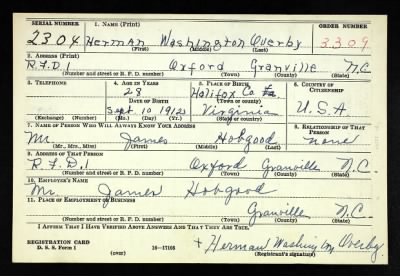 SERIAL NUMBER 1. NAME (Print) ORDER NUMBER
2304 Herman Washington Overby 3309
(First) (Middle) (Last)
2. ADDRESS (Print)
R.F.D.1 Oxford Granville N.C.
(Number and street or R. F. D. number) (Town) (County) (State)
3. TELEPHONE 4. AGE IN YEARS 5. PLACE OF BIRTH 6. COUNTRY OF CITIZENSHIP
28 Halifox Co.
DATE OF BIRTH (Town or county)
Sept 10 1912 Virginia U.S.A.
(Exchange) (Number) (Mo.) (Day) (Yr.) (State or country)
7. NAME OF PERSON WHO WILL ALWAYS KNOW YOUR ADDRESS 8. RELATIONSHIP OF THAT PERSON
Mr. James Hobgood none
(Mr., Mrs., Miss) (First) (Middle) (Last)
9. ADDRESS OF THAT PERSON
R.F.D.1 Oxford Granville N.C.
(Number and street or R. F. D. number) (Town) (County) (State)
10. EMPLOYER'S NAME
Mr. James Hobgood
11. PLACE OF EMPLOYMENT OR BUSINESS
Granville N.C.
(Number and street or R. F. D. number) (Town) (County) (State)
I AFFIRM THAT I HAVE VERIFIED ABOVE ANSWERS AND THAT THEY ARE TRUE.
REGISTRATION CARD
D. S. S. Form 1 16-17105 + Herman Washington Overby
(Registrant's signature)